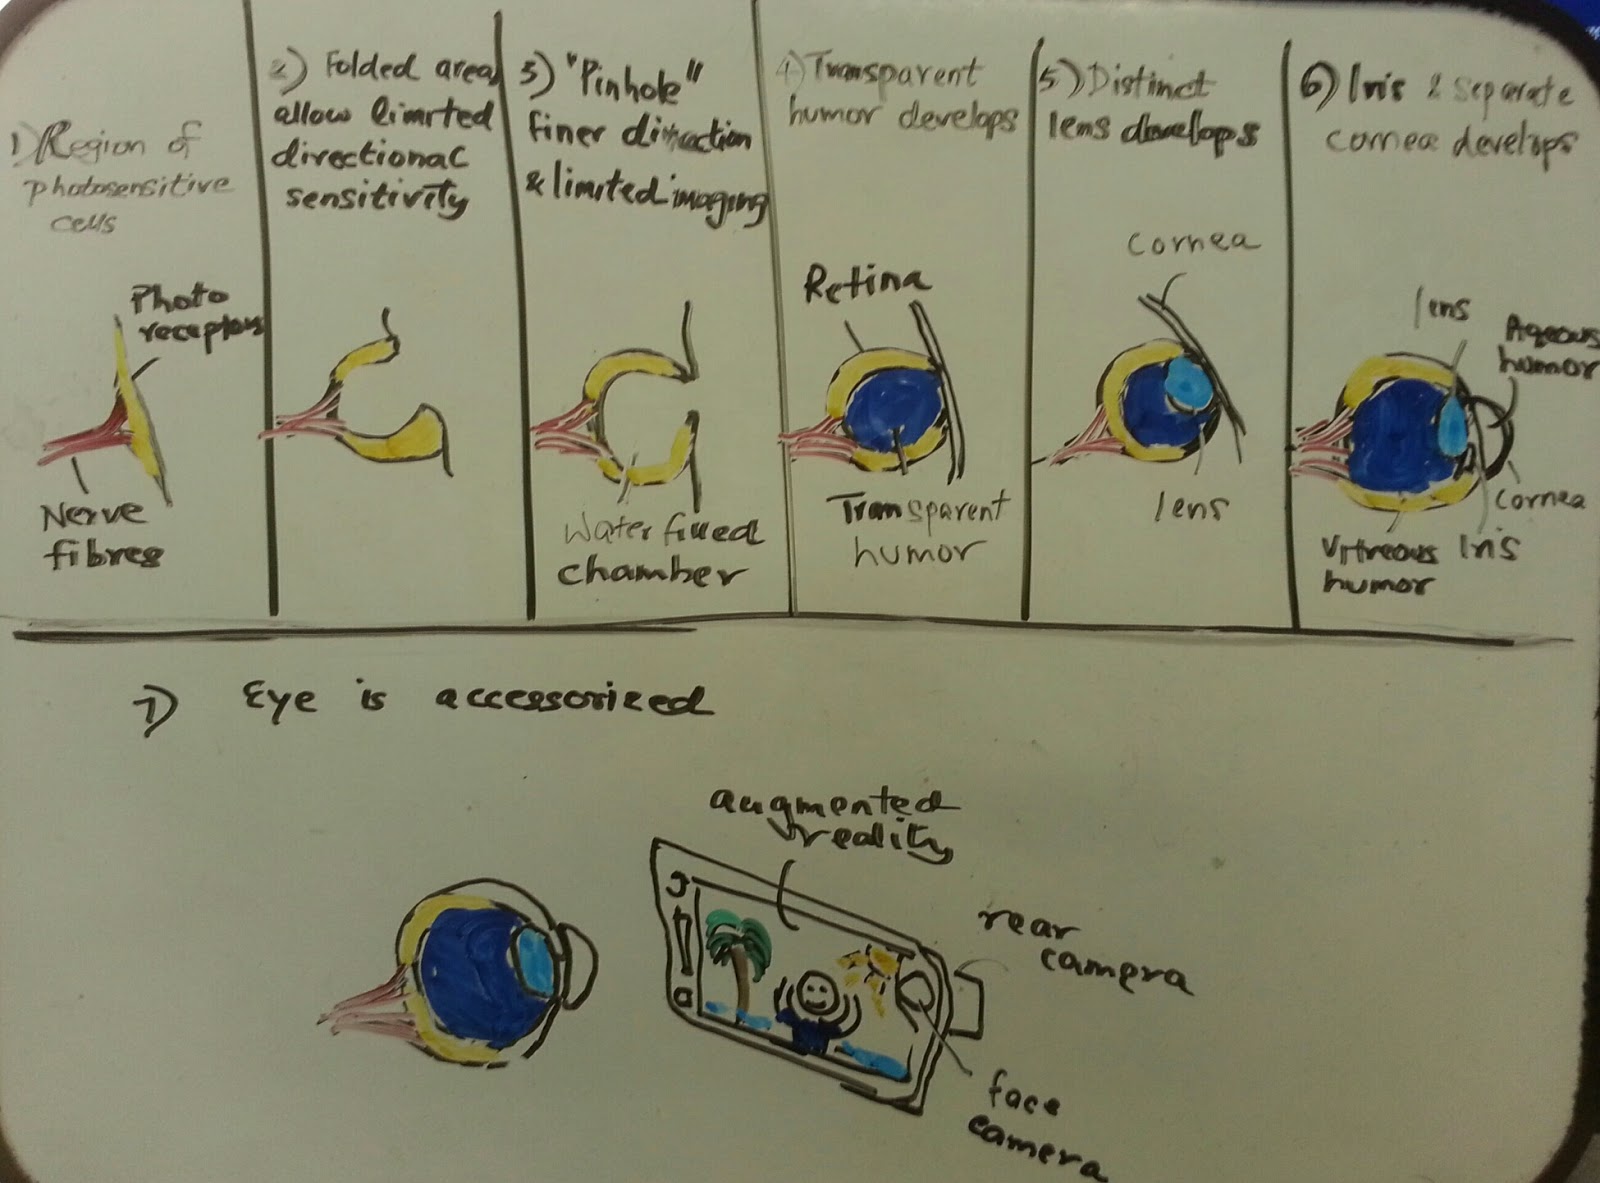 1) Region of
photosensitive
cells
Photo
receptors
Nerve
fibres
2) Folded area
allow limited
directional
sensitivity
3) "Pinhole"
finer dirraction
& limited imaging
Water filled
chamber
4) Transparent
humor develops
Retina
Transparent
humor
5) Distinct
lens develops
cornea
lens
6) Iris & separate
cornea develops
lens
Aqeous
humor
cornea
Vitreous
humor
Iris
7) Eye is accessorized
augmented
reality
rear
camera
face
camera